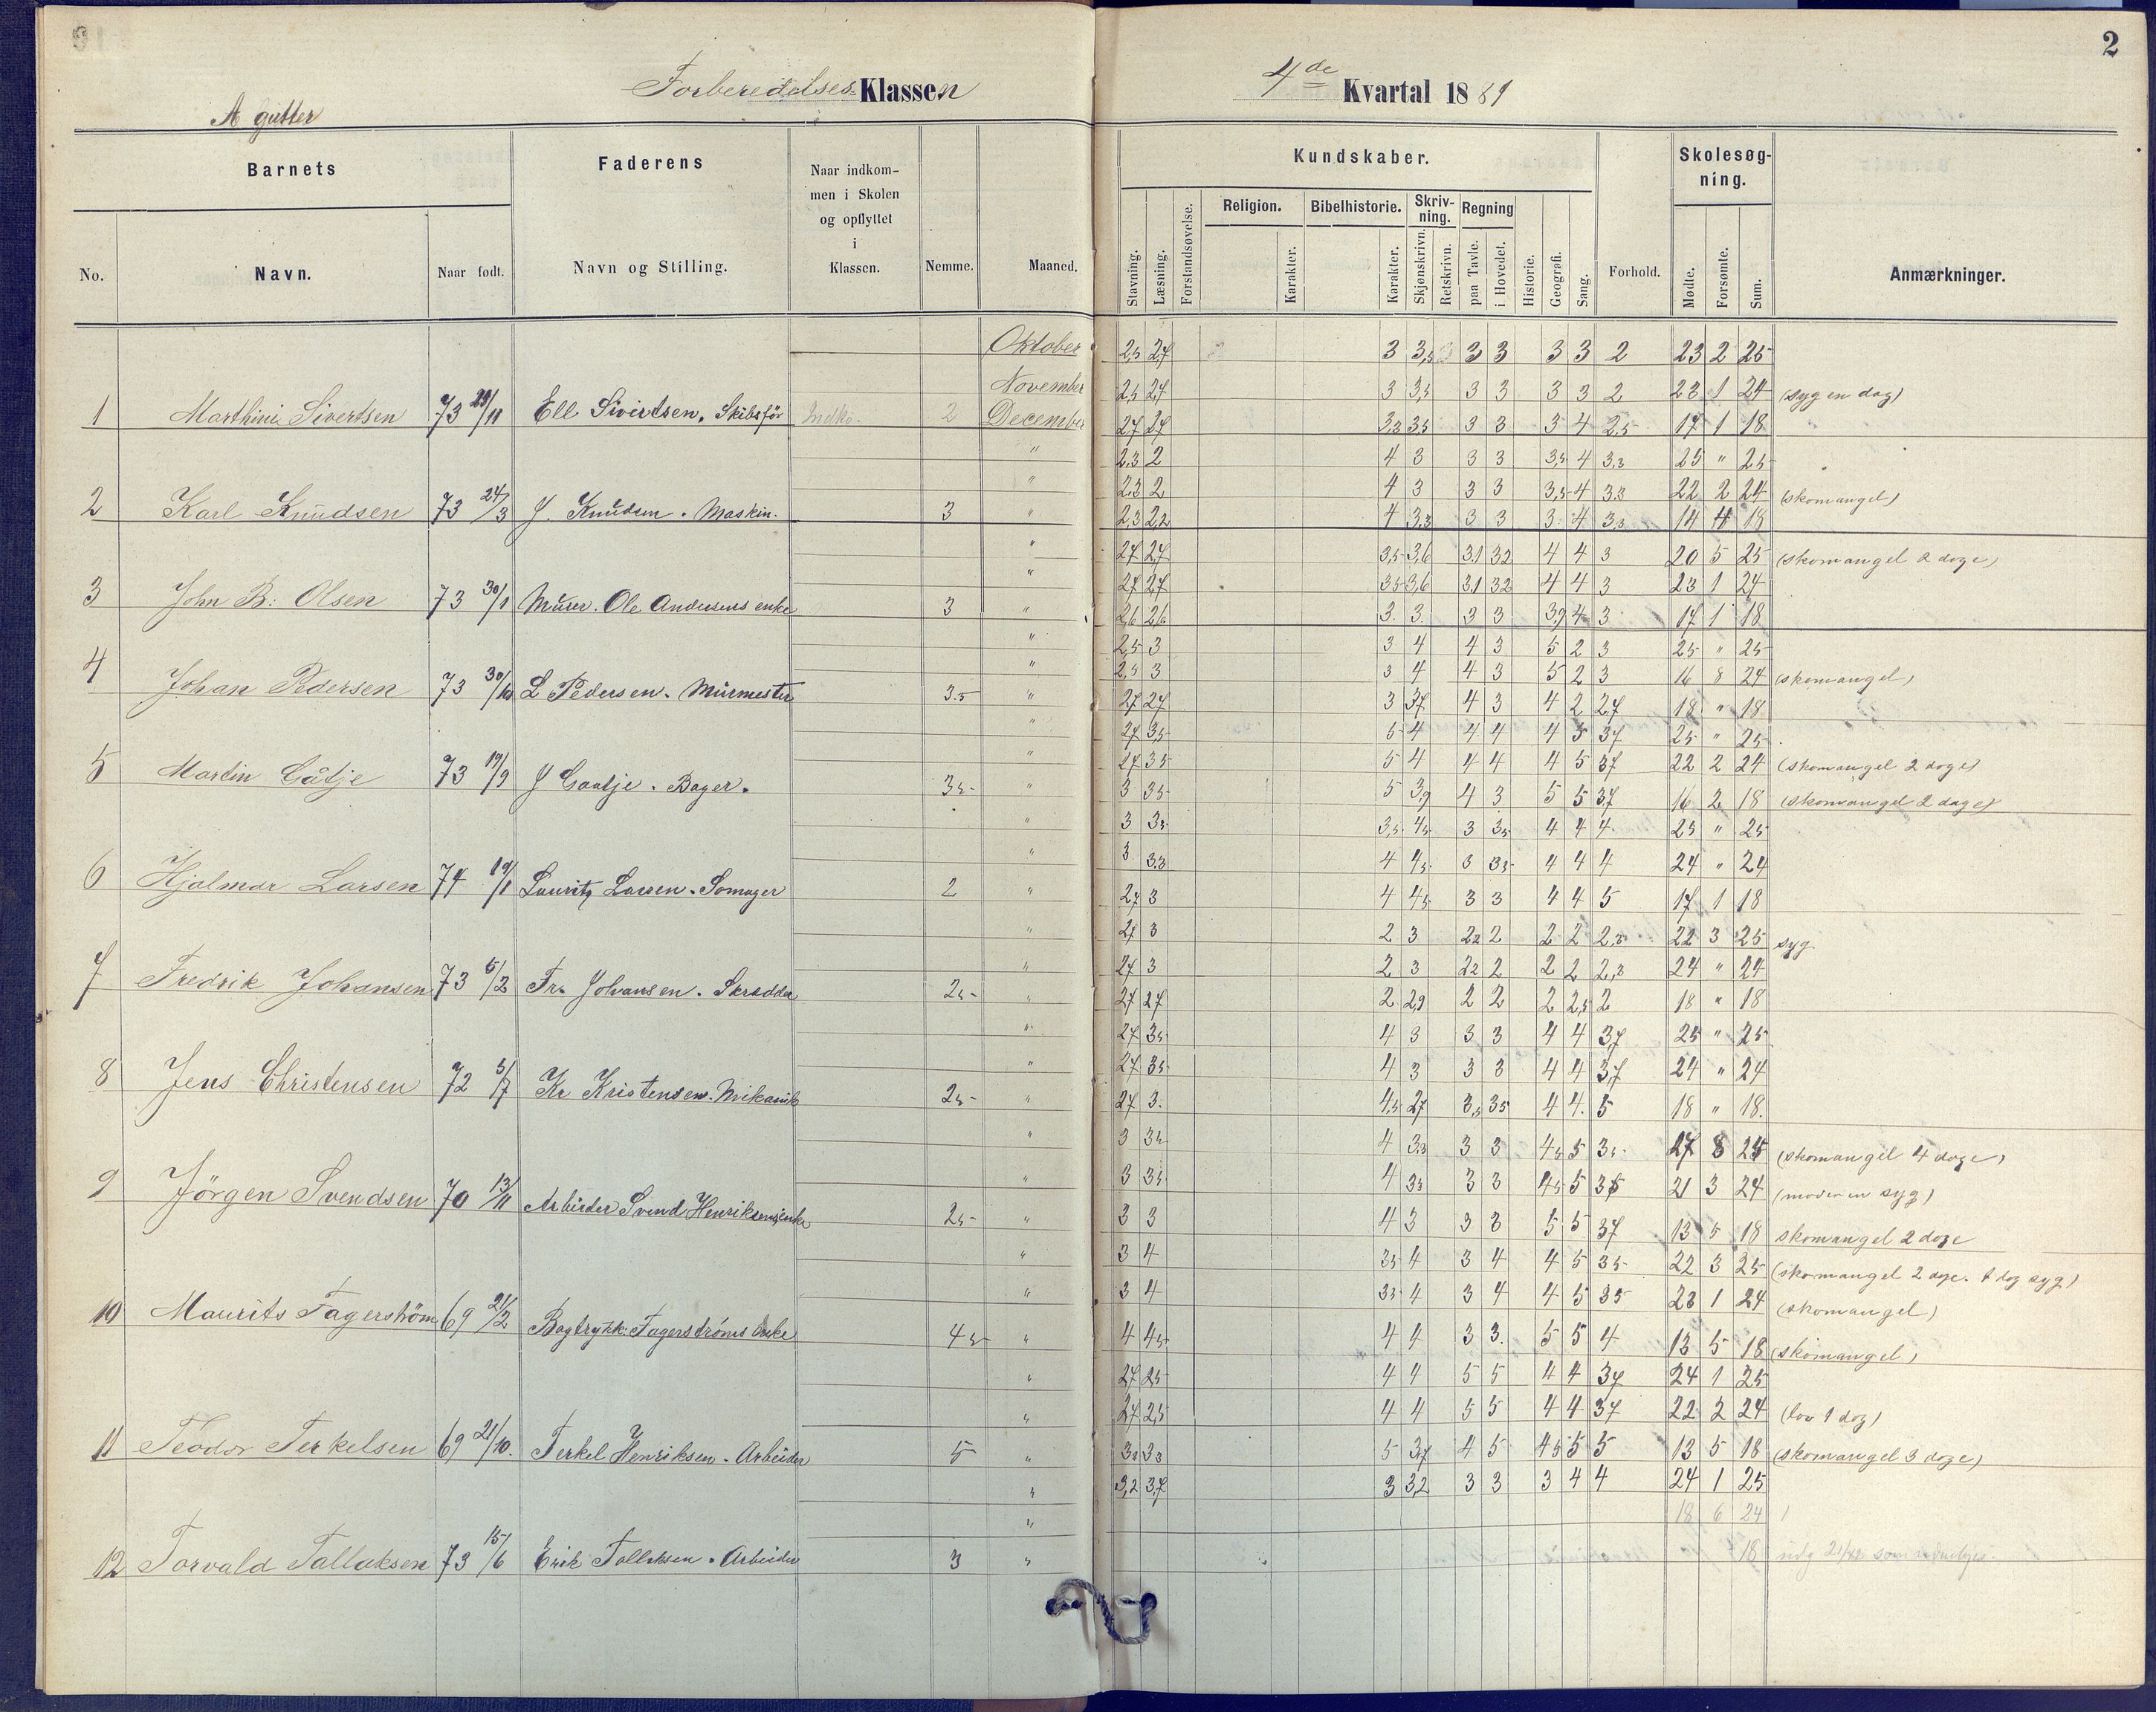 2
Forberedelses Klassen
4de Kvartal 1881
A gutter
Barnets
Faderens
Naar indkommen i Skolen og opflyttet i Klassen.
Nemme.
Maaned.
Kundskaber.
Forhold.
Skolesøgning.
Anmærkninger.
No.
Navn.
Naar født.
Navn og Stilling.
Stavning.
Læsning.
Forstandsøvelse.
Religion.
Karakter.
Bibelhistorie.
Karakter.
Skrivning.
Skjønskrivn.
Retskrivn.
Regning
paa Tavle.
i Hovedet.
Historie.
Geografi.
Sang.
Mødte.
Forsømte.
Sum.
Oktober 2,5 2,7 3 3,5 3 3 3 3 2 23 2 25
November 2,5 2,7 3 3,5 3 3 3 3 2 23 1 24 (syg en dag)
1 Marthini Sivertsen 73 29/11 Ell Sivertsen. Skibsfør Indko. 2 December 2,7 2,7 3,3 3,5 3 3 3 4 2,5 17 1 18
" 2,3 2 4 3 3 3 3,5 4 3,3 25 " 25
" 2,3 2 4 3 3 3 3,5 4 3,3 22 2 24 (skomangel)
2 Karl Knudsen 73 24/3 J. Knudsen. Maskin. 3 " 2,3 2,2 4 3,3 3 3 3 4 3,3 14 4 18
" 2,7 2,7 3,5 3,6 3,1 3,2 4 4 3 20 5 25 (skomangel 2 dage)
" 2,7 2,7 3,5 3,6 3,1 3,2 4 4 3 23 1 24
3 John B: Olsen 73 30/1 Murer. Ole Andersens enke 3 " 2,6 2,6 3 3 3 3 3,9 4 3 17 1 18
" 2,5 3 3 4 4 3 5 2 3 25 " 25
" 2,5 3 3 4 4 3 5 2 3 16 8 24 (skomangel)
4 Johan Pedersen 73 30/10 L Pedersen. Murmester 3.5 " 2,7 2,7 3 3,7 4 3 4 2 2,7 18 " 18
" 2,7 3,5 5 4 4 4 4 5 3,7 25 " 25
" 2,7 3,5 5 4 4 4 4 5 3,7 22 2 24 (skomangel 2 dage)
5 Martin Gåtje 73 19/9 J Gaatje. Bager. 3,5 " 3 3,5 5 3,9 4 3 5 5 3,7 16 2 18 (skomangel 2 dage)
" 3 3,5 3,5 4,5 3 3,5 4 4 4 25 " 25
" 3 3,3 4 4,5 3 3,5 4 4 4 24 " 24
6 Hjalmar Larsen 74 19/1 Lauritz Larsen. Somager 2 " 2,7 3 4 4,5 3 3 4 4 5 17 1 18
" 2,7 3 2 3 2,2 2 2 2 2,3 22 3 25 syg
" 2,7 3 2 3 2,2 2 2 2 2,3 24 " 24
7 Fredrik Johansen 73 5/2 Fr. Johansen. Skrædder 2,5 " 2,7 2,7 2 2,9 2 2 2 2,5 2 18 " 18
" 2,7 3,5 4 3 3 3 4 4 3,7 25 " 25
" 2,7 3,5 4 3 3 3 4 4 3,7 24 " 24
8 Jens Christensen 72 5/7 Kr Kristensen. Mekanik 2,5 " 2,7 3. 4,5 2,7 3,5 3,5 4 4. 5 18 " 18.
" 3 3,5 4 3,3 3 3 4,5 5 3,5 17 8 25 (skomangel 4 dage)
" 3 3,5 4 3,3 3 3 4,5 5 3,5 21 3 24 (moderen syg)
9 Jörgen Svendsen 70 13/11 Arbeider Svend Henriksens enke 2,5 " 3 3 4 3 3 3 5 5 3,7 13 5 18 skomangel 2 dage
" 3 4 3,5 4 3 4 4 5 3,5 22 3 25 (skomangel 2 dage. 1 dag syg)
" 3 4 3,5 4 3 4 4 5 3,5 23 1 24 (skomangel)
10 Maurits Fagerström 69 21/2 Bogtrykk: Fagerströms Enke 4,5 " 4 4,5 4 4 3 3. 5 5 4 13 5 18 (skomangel)
" 2,7 2,5 4 4 5 5 4 4 3,7 24 1 25
" 2,7 2,5 4 4 5 5 4 4 3,7 22 2 24 (lov 1 dag)
11 Teodor Terkelsen 69 21/10. Terkel Henriksen. Arbeider 5 " 3,3 3,3 5 3,7 4 5 4,5 5 5 13 5 18 (skomangel 3 dage)
" 3,2 3,7 3 3,2 3 3 3 4 4 24 1 25
" 18 6 24
12 Torvald Tallaksen 73 15/6 Erik Tollaksen. Arbeider 3 " 18 udg 21/12 som